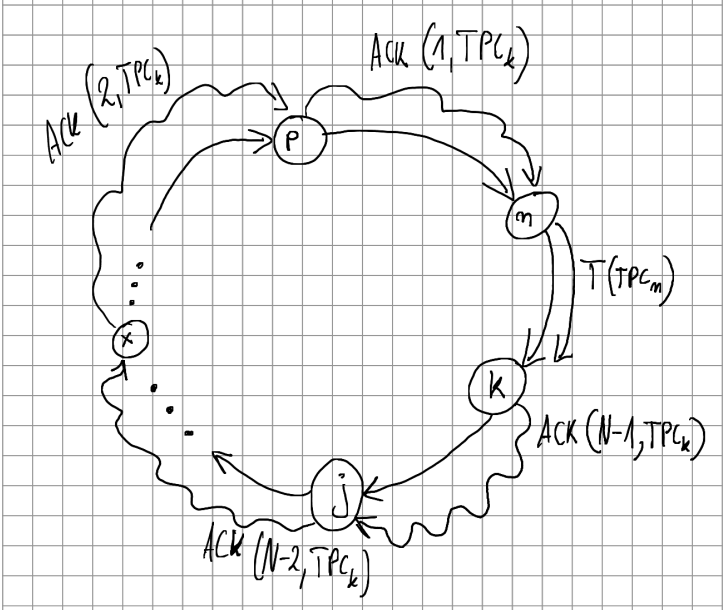 ACK (1, TPCk)
ACK (2, TPCk)
P
m
T(TPCm)
x
k
ACK (N-1, TPCk)
j
ACK (N-2, TPCk)